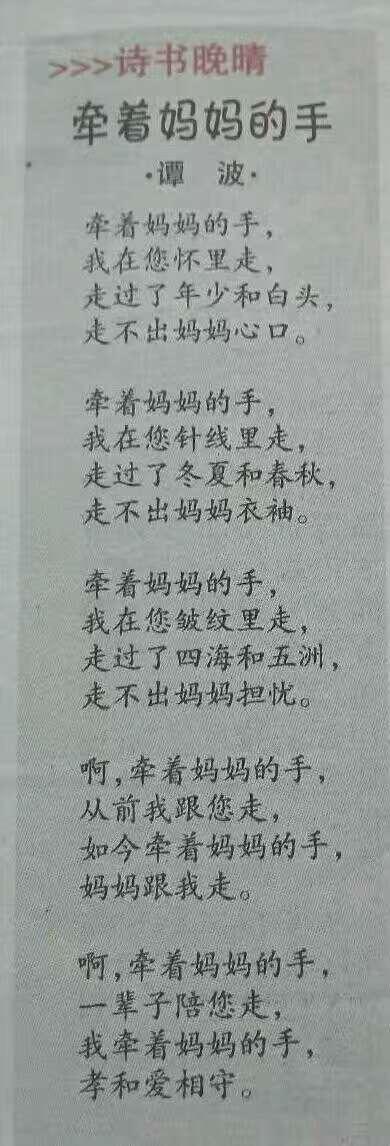 >>>诗书晚晴
牵着妈妈的手
·谭 波·
牵着妈妈的手，
我在您怀里走，
走过了年少和白头，
走不出妈妈心口。
牵着妈妈的手，
我在您针线里走，
走过了冬夏和春秋，
走不出妈妈衣袖。
牵着妈妈的手，
我在您皱纹里走，
走过了四海和五洲，
走不出妈妈担忧。
啊，牵着妈妈的手，
从前我跟您走，
如今牵着妈妈的手，
妈妈跟我走。
啊，牵着妈妈的手，
一辈子陪您走，
我牵着妈妈的手，
孝和爱相守。